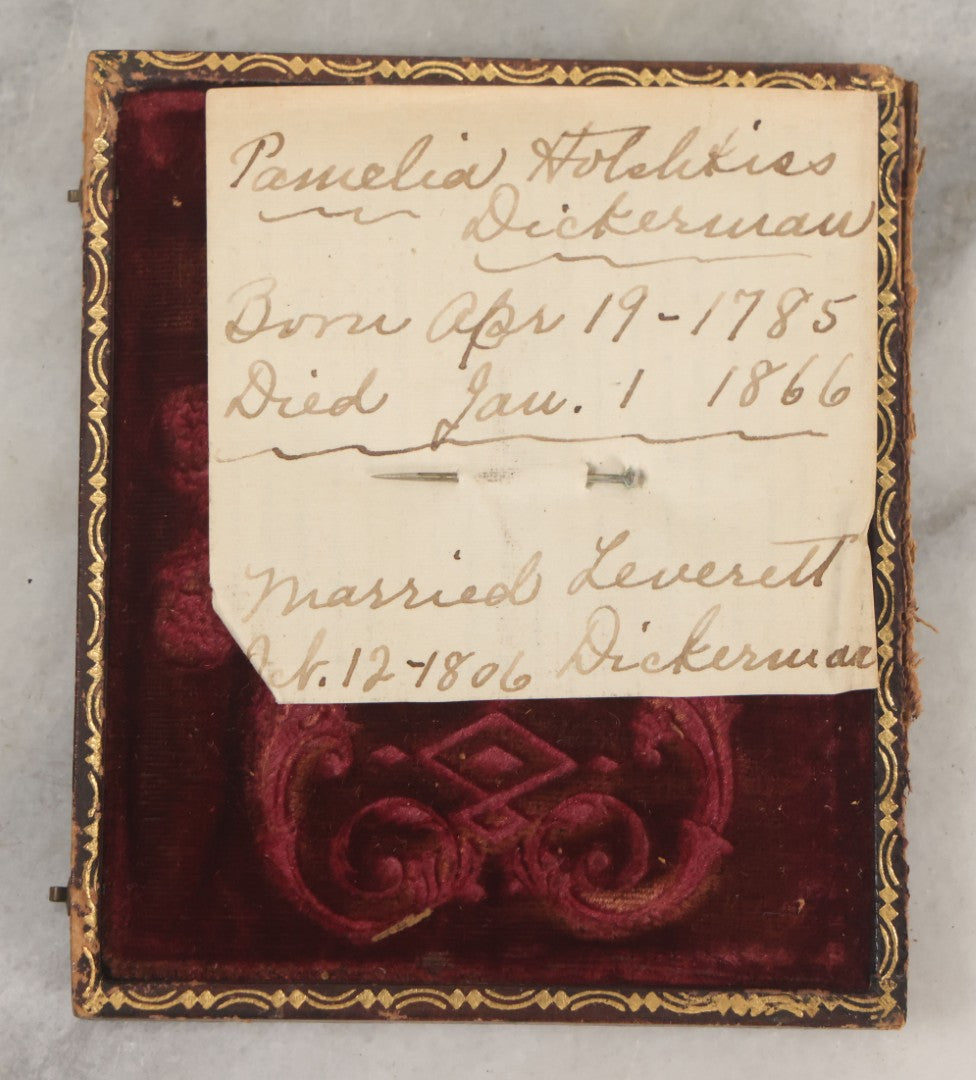 Pamelia Hotchkiss
Dickerman
Born Apr 19-1785
Died Jan. 1 1866
Married Leverett
12-1806 Dickerman